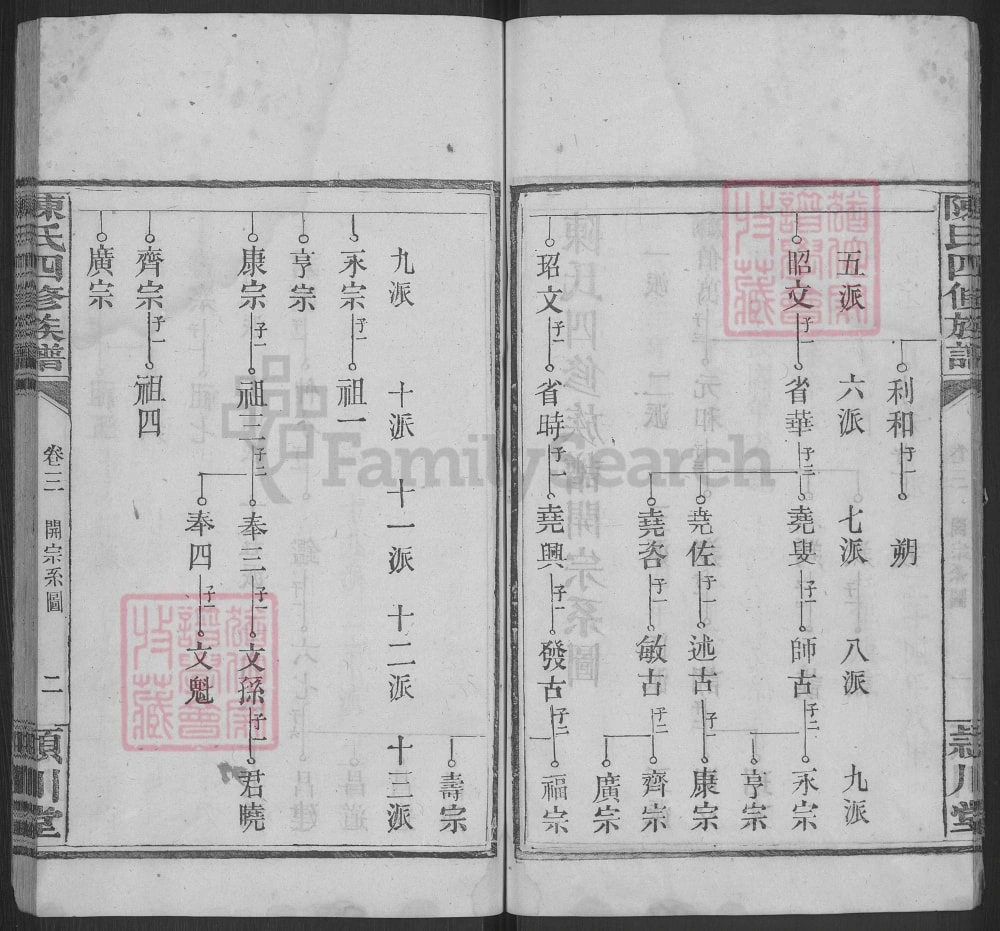 陳氏四修族譜
潁川堂
利和 子一 朔
五派 六派 七派 八派 九派
昭文 子一 省華 子三 堯叟 子一 師古 子二 永宗
亨宗
堯佐 子一 述古 子一 康宗
堯咨 子一 敏古 子二 齊宗
廣宗
玿文 子一 省時 子一 堯興 子一 發古 子二 福宗
壽宗
九派 十派 十一派 十二派 十三派
永宗 子一 祖一
亨宗
康宗 子一 祖三 子二 奉三 子一 文孫 子一 君曉
奉四 子一 文魁
齊宗 子一 祖四
廣宗
陳氏四修族譜
卷三 開宗系圖
二
潁川堂
FamilySearch